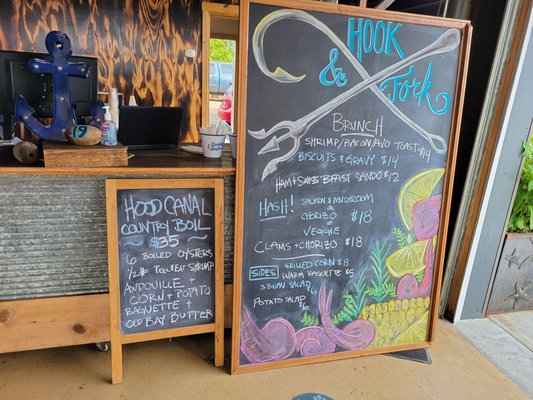 HOOK
& fork
BRUNCH
SHRIMP/BACON/AVO TOAST $14
BISCUITS & GRAVY $14
HAM + SWISS BKFAST SANDO $12
HASH! SALMON & MUSHROOM
OR
CHORIZO $18
OR
VEGGIE
CLAMS + CHORIZO $18
SIDES: GRILLED CORN $8
WARM BAGUETTE $5
3 BEAN SALAD $6
POTATO SALAD $6
HOOD CANAL
COUNTRY BOIL
$35
6 BOILED OYSTERS
1/2# PEEL N EAT SHRIMP
ANDOUILLE +
CORN + POTATO
BAGUETTE +
OLD BAY BUTTER